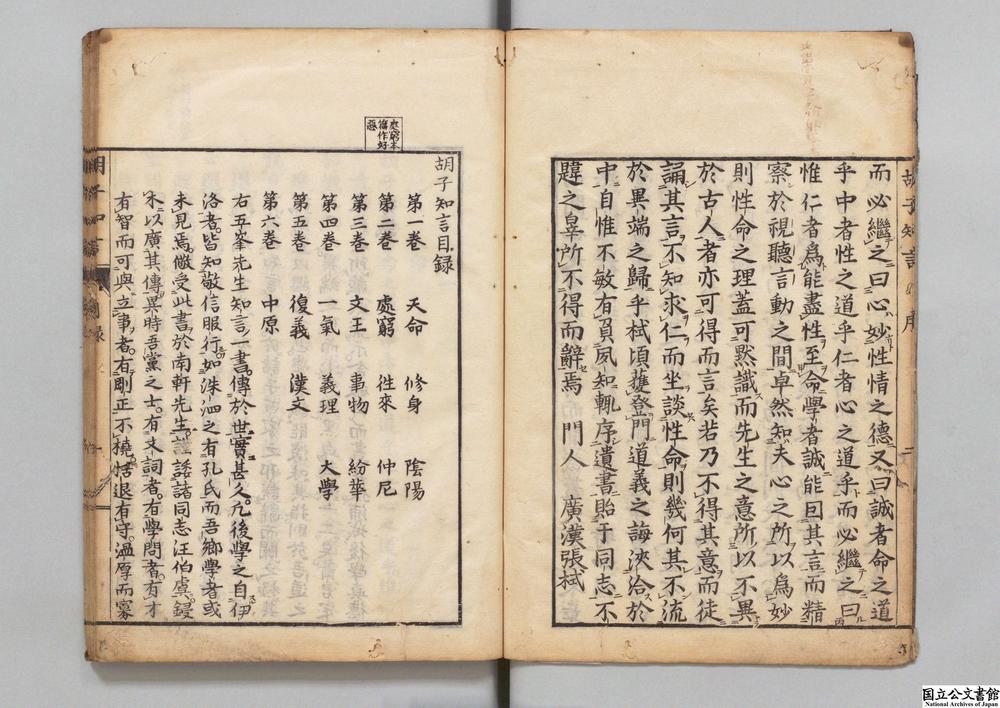 而必繼之曰心妙性情之德又曰誠者命之道
乎中者性之道乎仁者心之道乎而必繼之曰
惟仁者爲能盡性至命學者誠能因其言而精
察於視聽言動之間卓然知夫心之所以爲妙
則性命之理蓋可默識而先生之意所以不異
於古人者亦可得而言矣若乃不得其意而徒
誦其言不知求仁而坐談性命則幾何其不流
於異端之歸乎栻頃獲登門道義之誨浹洽於
中自惟不敏有負夙知輒序遺書貽于同志不
韙之辠所不得而辭焉 門人 廣漢張栻
胡子知言目録
第一卷 天命 修身 陰陽
第二卷 處窮 徃來 仲尼
第三卷 文王 事物 紛華
第四卷 一氣 義理 大學
第五卷 復義 漢文
第六卷 中原
右五峯先生知言一書傳於世實甚久凢後學之自伊
洛者皆知敬信服行如洙泗之有孔氏而吾鄉學者或
未見焉儆受此書於南軒先生謹諉諸同志汪伯虞鋟
木以廣其傳異時吾黨之士有文詞者有學問者有才
有智而可與立事者有剛正不橈恬退有守温厚而寡
胡子知言
序
目録
國立公文書館
National Archives of Japan